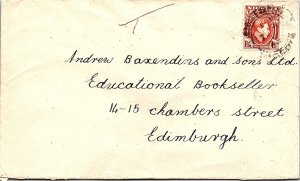 T
Andrew Baxendins and sons Ltd.
Educational Bookseller
14-15 chambers street
Edimburgh.